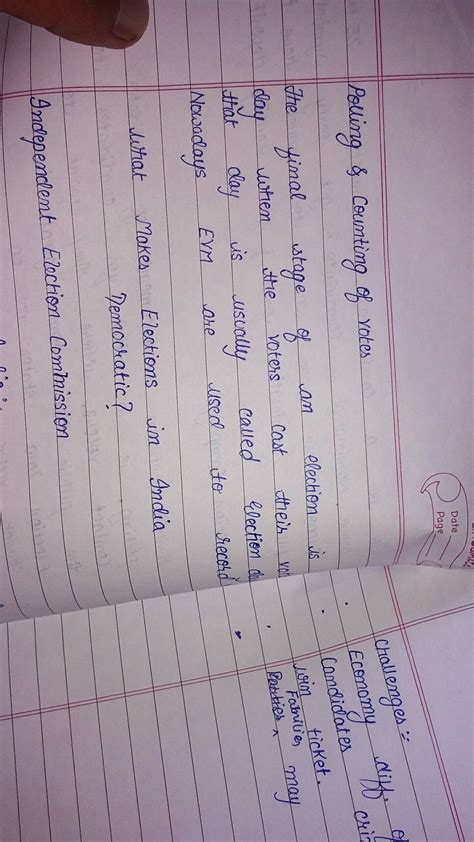 Date
Page
Polling & Counting of votes
The final stage of an election is
day when the voters cast their
that day is usually called Election
Nowadays EVM are used to record
What Makes Elections in India
Democratic?
Independent Election Commission
Challenges :-
Economy diff. of
Candidates
win ticket.
Families
Parties ^ may